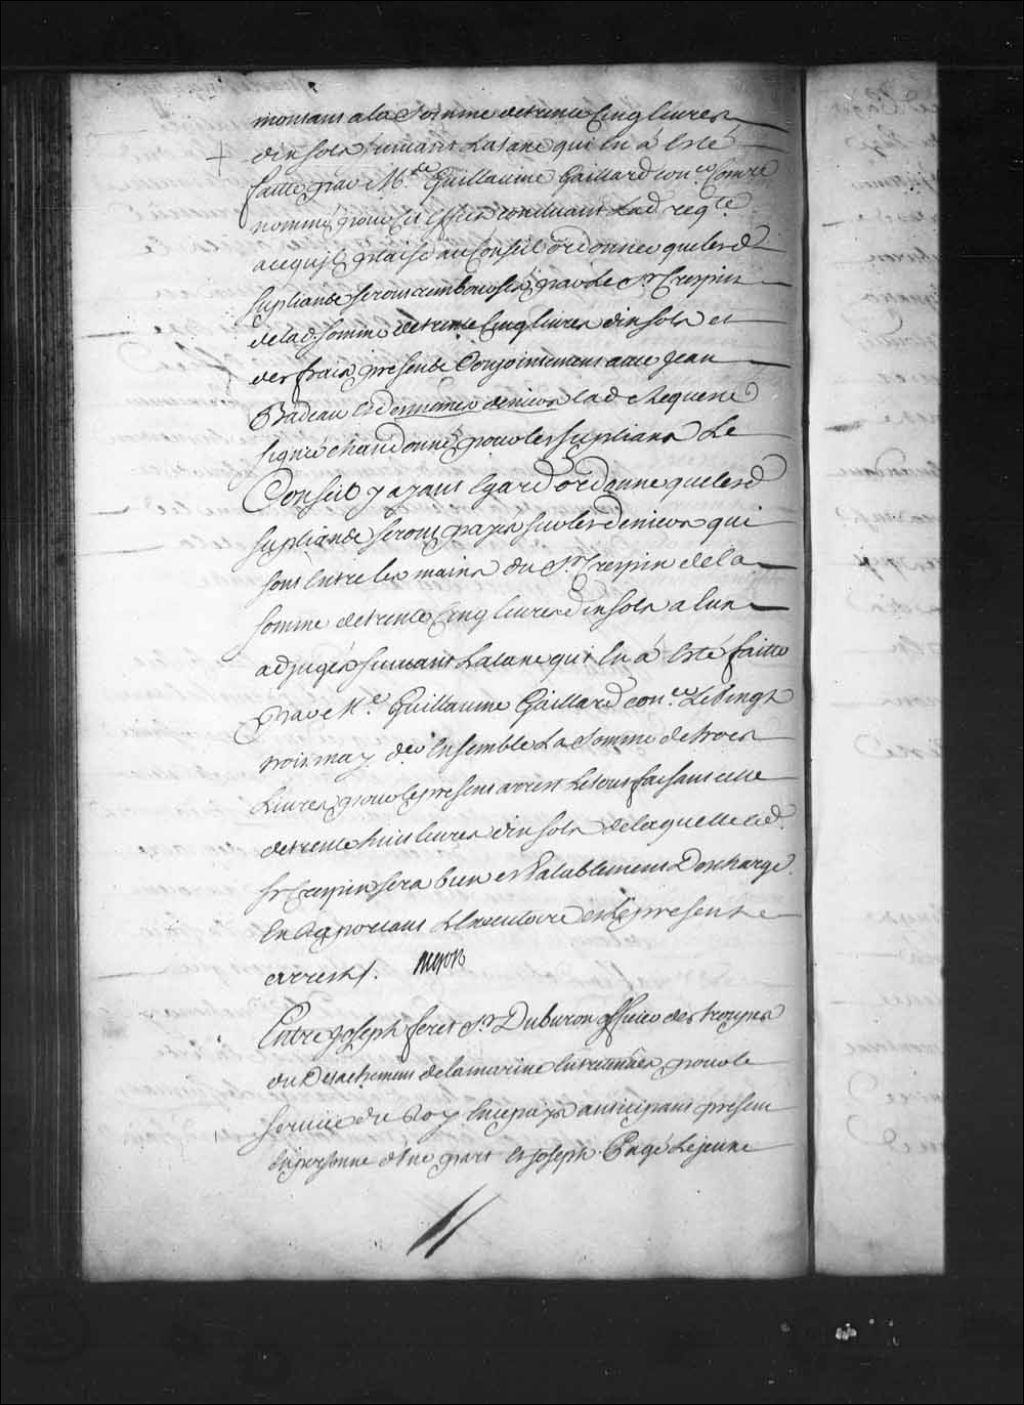 montant a la Somme de trente Cinq livres
dix sols suivant la taxe qui en a Esté
faitte par Me. Guillaume Gaillard con.er Com.re
nommé pour cet effet concluant lad req.te
a ce qu'il plaise au Conseil ordonner que lesd
suplians seront rembourses par le Sr. Crespin
de lad. somme de trente Cinq livres dix sols et
des frais presents Conjointement avec Jean
Badeau led denieres deniers lad Requeste
signée chaudonné pour les suplians Le
Conseil y ayant Egard ordonne que lesd
suplians seront payés sur les deniers qui
sont Entre les mains du Sr. Crespin de la
somme de trente Cinq livres dix sols a Eux
adjugés suivant la taxe qui En a Esté faitte
par Me. Guillaume Gaillard con.er Le Vingt
trois may d.er Ensemble La Somme de trois
Livres pour le present arrest Le tout faisant celle
de trente huit livres dix sols de laquelle led.
Sr. Crespin sera bien et Valablement Descharge
En Raportant L'Executoire et le present
arrest.
Begon
Entre Joseph feret Sr. Duburon officier des troupes
du Detachement de la marine Entretenues pour le
service du Roy En ce pays anticipant present
En personne d'Une part Et Joseph Pagé Le jeune